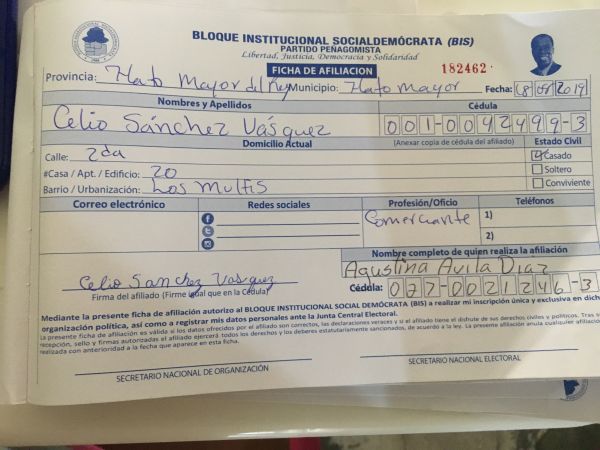 BLOQUE INSTITUCIONAL SOCIALDEMÓCRATA (BIS)
PARTIDO PEÑAGOMISTA
Libertad, Justicia, Democracia y Solidaridad
FICHA DE AFILIACION
182462
Provincia: Hato Mayor del Rey Municipio: Hato mayor Fecha: 18 08 2019
Nombres y Apellidos Cédula
Celio Sánchez Vásquez 001-0042499-3
Domicilio Actual (Anexar copia de cédula del afiliado) Estado Civil
Calle: 2da Casado
#Casa / Apt. / Edificio: 20 Soltero
Barrio / Urbanización: Los Multis Conviviente
Correo electrónico Redes sociales Profesión/Oficio Teléfonos
Comerciante 1)
2)
Nombre completo de quien realiza la afiliación
Agustina Avila Diaz
Celio Sanchez Vasquez
Cédula: 077-0021246-3
Firma del afiliado (Firme igual que en la Cédula)
Mediante la presente ficha de afiliación autorizo al BLOQUE INSTITUCIONAL SOCIAL DEMÓCRATA (BIS) a realizar mi inscripción única y exclusiva en dich
organización política, así como a registrar mis datos personales ante la Junta Central Electoral.
La presente ficha de afiliación es válida si los datos ofrecidos por el afiliado son correctos, las declaraciones veraces y si el afiliado tiene el disfrute de sus derechos civiles y políticos. Tras s
recepción, sello y firmas autorizadas el afiliado ejercerá todos los derechos y los deberes estatutariamente sancionados, de acuerdo a la ley. La presente afiliación anula cualquier afiliación
realizada con anterioridad a la fecha que aparece en esta ficha.
SECRETARIO NACIONAL DE ORGANIZACIÓN
SECRETARIO NACIONAL ELECTORAL